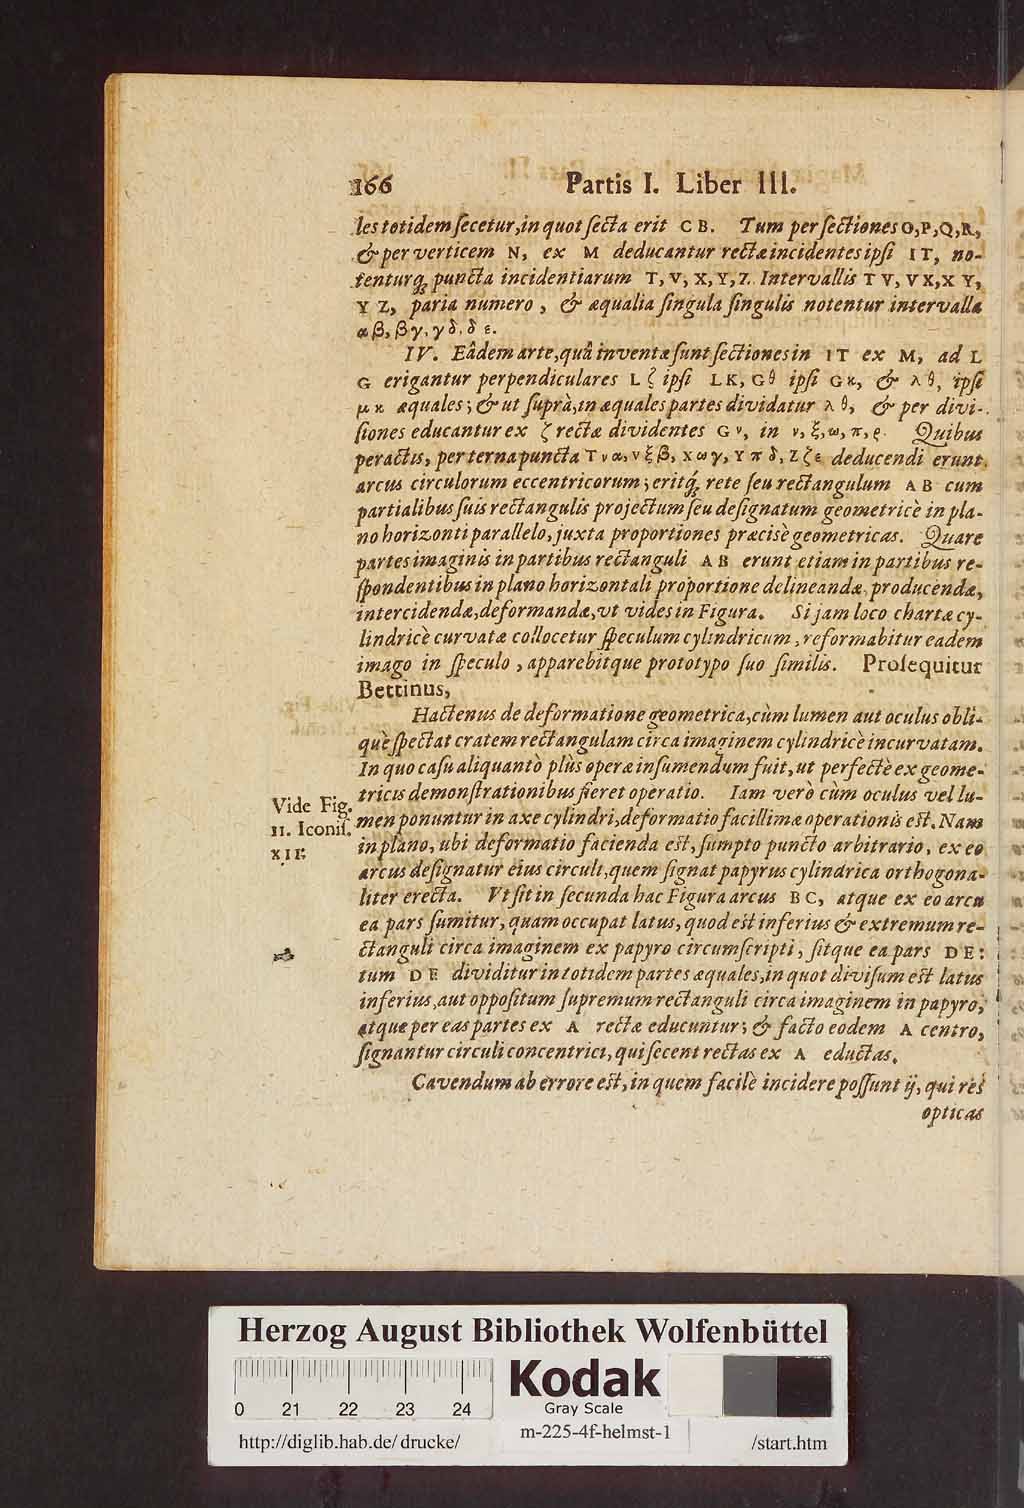 166 Partis I. Liber III.
les totidem ſecetur, in quot ſecta erit CB. Tum per ſectiones O, P, Q, R,
& per verticem N, ex M deducantur rectæ incidentes ipſi IT, no-
tenturq; puncta incidentiarum T, V, X, Y, Z. Intervallis TV, VX, XY,
YZ, paria numero, & æqualia ſingula ſingulis notentur intervalla
αβ, βγ, γδ, δε.
IV. Eâdem arte, quâ inventæ ſunt ſectiones in IT ex M, ad L
G erigantur perpendiculares Lζ ipſi LK, Gθ ipſi Gκ, & λθ, ipſi
μκ æquales; & ut ſuprà, in æquales partes dividatur λθ, & per divi-
ſiones educantur ex ζ rectæ dividentes Gν, in ν, ξ, ω, π, ρ. Quibus
peractis, per terna puncta Tνα, νξβ, Xωγ, Yπδ, Zζε deducendi erunt
arcus circulorum eccentricorum; eritq́; rete ſeu rectangulum AB cum
partialibus ſuis rectangulis projectum ſeu deſignatum geometricè in pla-
no horizonti parallelo, juxta proportiones præcisè geometricas. Quare
partes imaginis in partibus rectanguli AB erunt etiam in partibus re-
ſpondentibus in plano horizontali proportione delineandæ, producendæ,
intercidendæ, deformandæ, vt vides in Figura. Si jam loco chartæ cy-
lindricè curvatæ collocetur ſpeculum cylindricum, reformabitur eadem
imago in ſpeculo, apparebitque prototypo ſuo ſimilis. Proſequitur
Bettinus,
Hactenus de deformatione geometrica, cùm lumen aut oculus obli-
què ſpectat cratem rectangulam circa imaginem cylindricè incurvatam.
In quo caſu aliquantò plùs operæ inſumendum fuit, ut perfectè ex geome-
tricis demonſtrationibus fieret operatio. Iam verò cùm oculus vel lu-
men ponuntur in axe cylindri, deformatio facillimæ operationis eſt. Nam
in plano, ubi deformatio facienda eſt, ſumpto puncto arbitrario, ex eo
arcus deſignatur eius circuli, quem ſignat papyrus cylindrica orthogona-
liter erecta. Vt ſit in ſecunda hac Figura arcus BC, atque ex eo arcu
ea pars ſumitur, quam occupat latus, quod eſt inferius & extremum re-
ctanguli circa imaginem ex papyro circumſcripti, ſitque ea pars DE:
tum DE dividitur in totidem partes æquales, in quot diviſum eſt latus
inferius, aut oppoſitum ſupremum rectanguli circa imaginem in papyro,
atque per eas partes ex A rectæ educuntur; & facto eodem A centro,
ſignantur circuli concentrici, qui ſecent rectas ex A eductas.
Cavendum ab errore eſt, in quem facilè incidere poſſunt ij, qui res
opticas
Vide Fig.
11. Iconiſ.
XII.
Herzog August Bibliothek Wolfenbüttel
0 21 22 23 24
Kodak
Gray Scale
http://diglib.hab.de/drucke/
m-225-4f-helmst-1
/start.htm